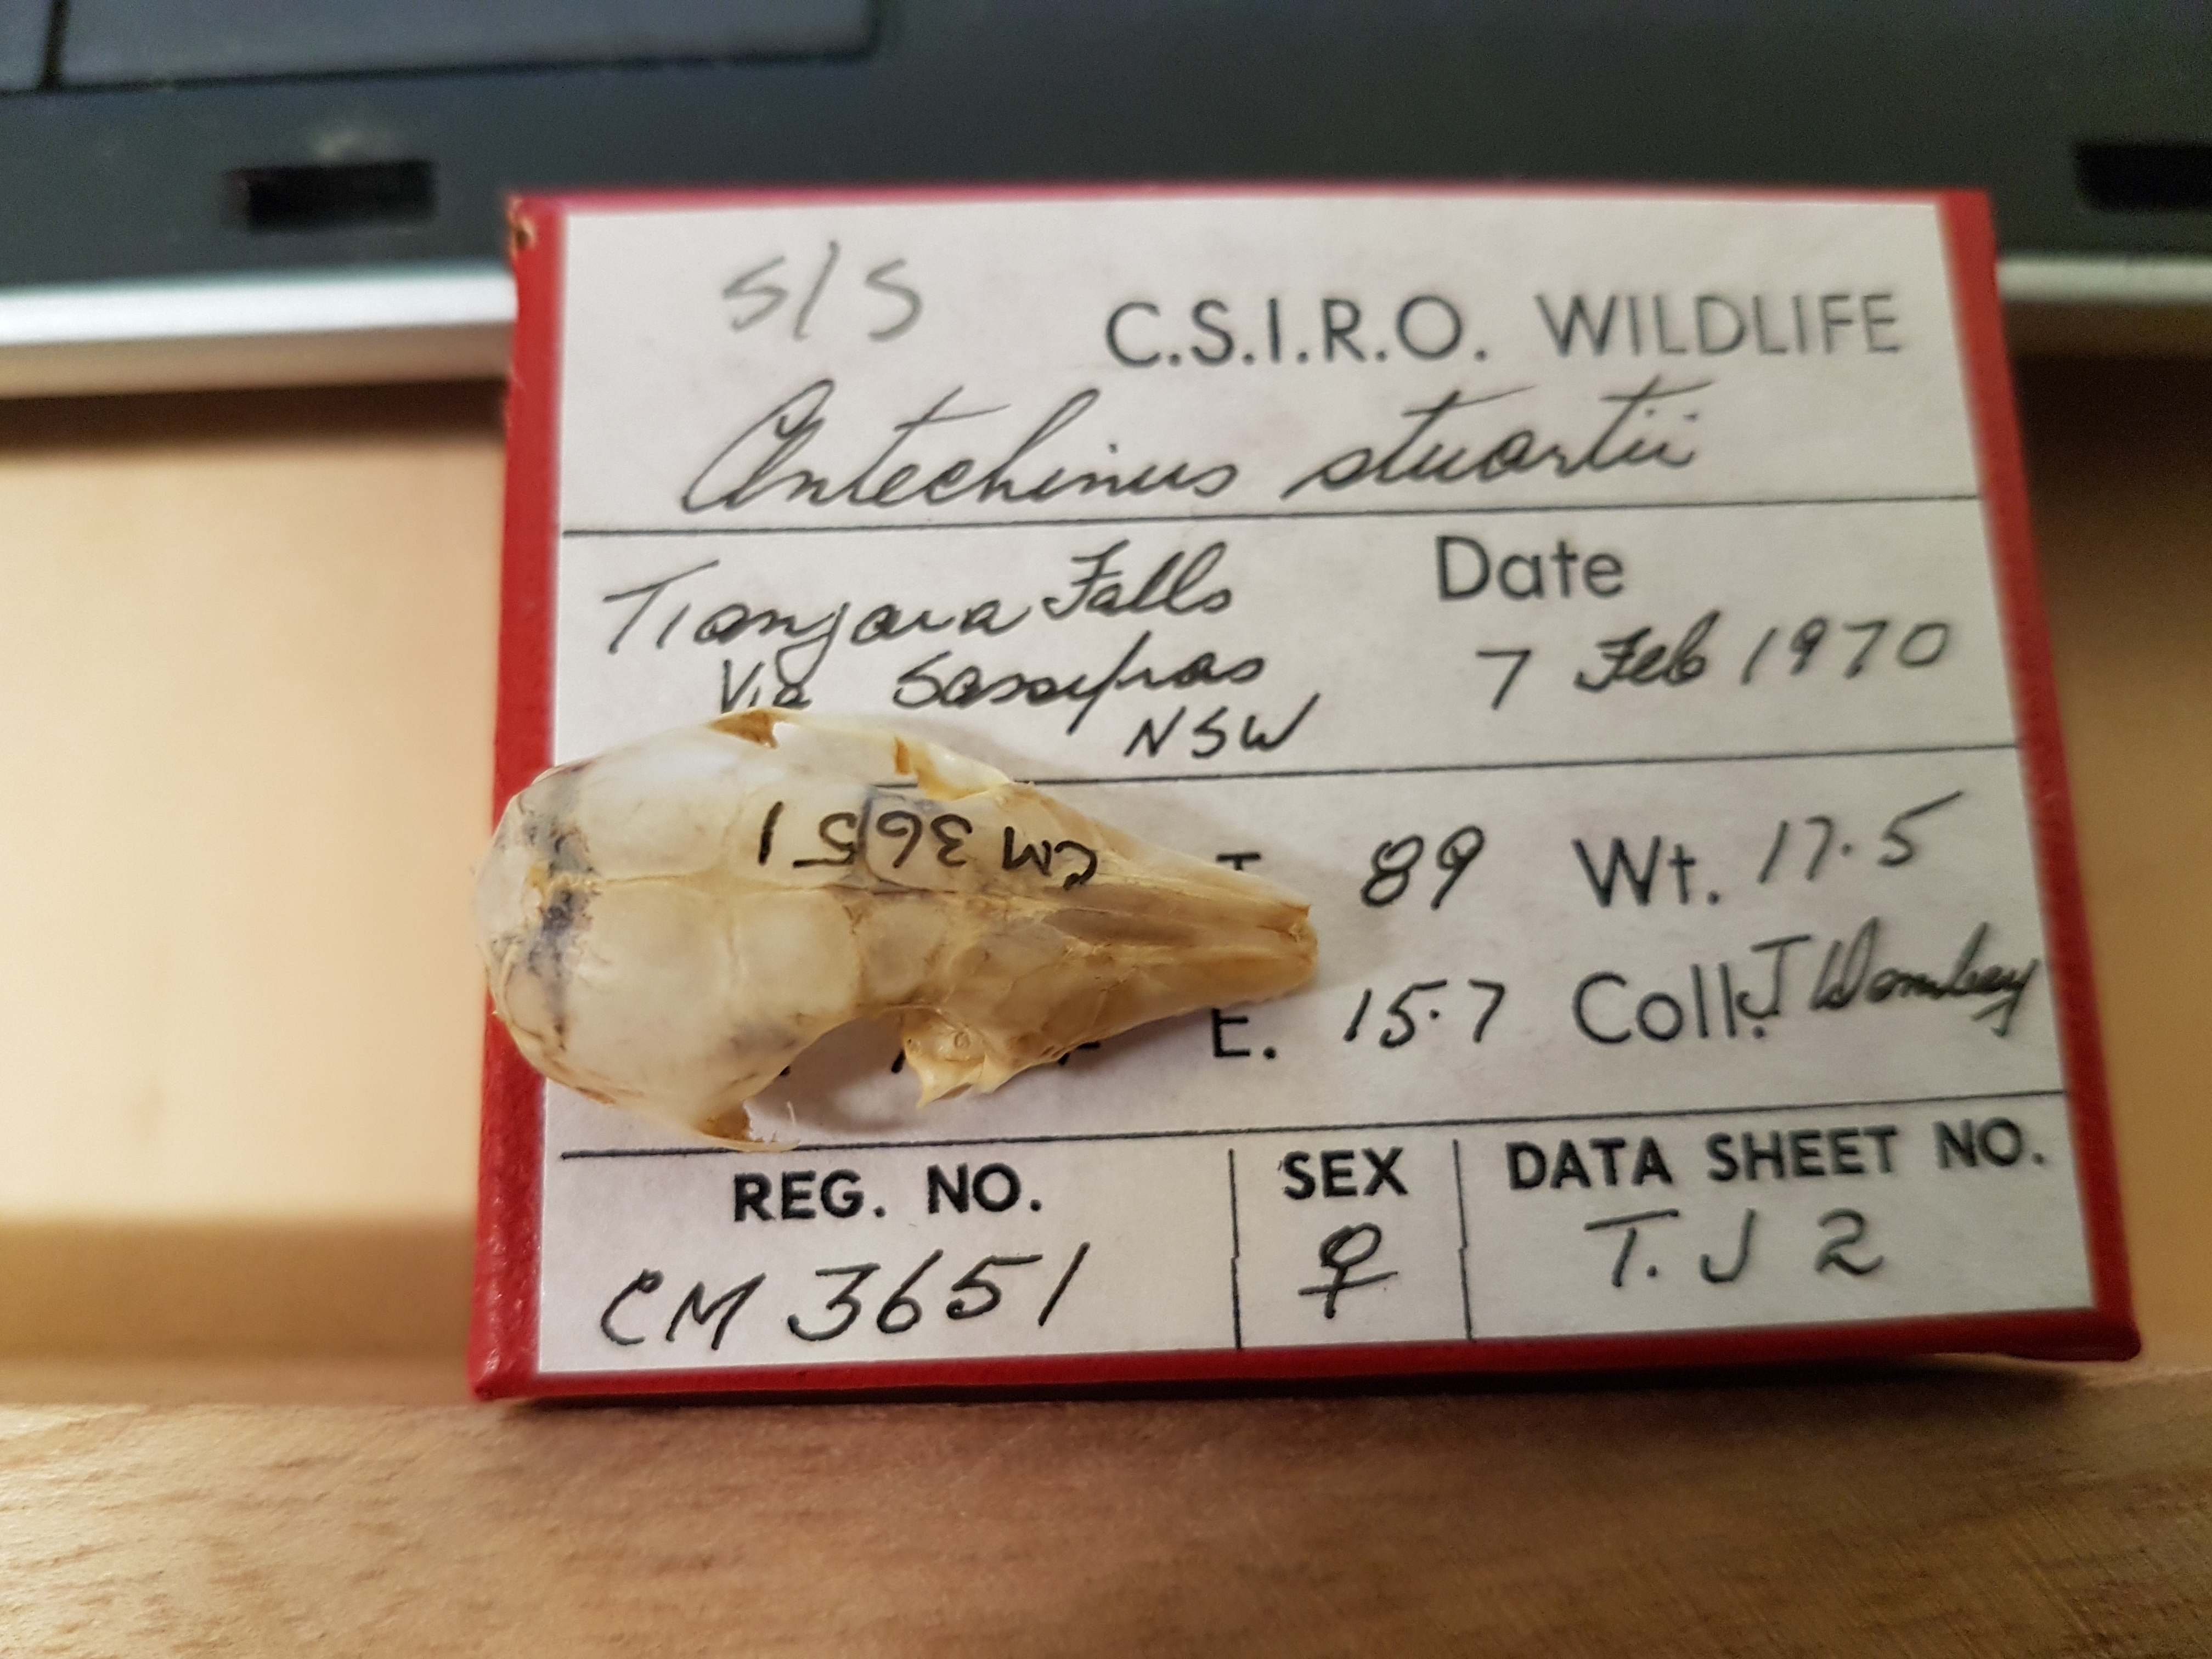 S/S
C.S.I.R.O. WILDLIFE
Antechinus stuartii
Tianjara Falls
Via Sassafras
NSW
Date
7 Feb 1970
CM 3651
T 89 Wt. 17.5
E. 15.7 Coll. J Wombey
REG. NO. SEX DATA SHEET NO.
CM 3651 ♀ T.J 2